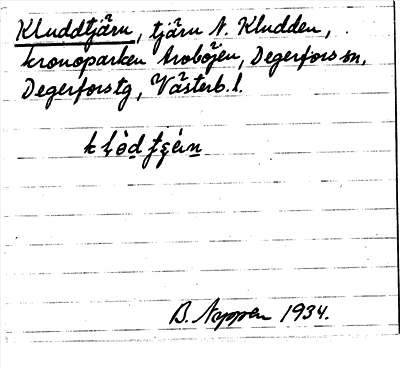 Kluddtjärn, tjärn N. Kludden,
kronoparken Aroböjen, Degerfors sn,
Degerforstg, Västerb. l.
B. Nyppen 1934.